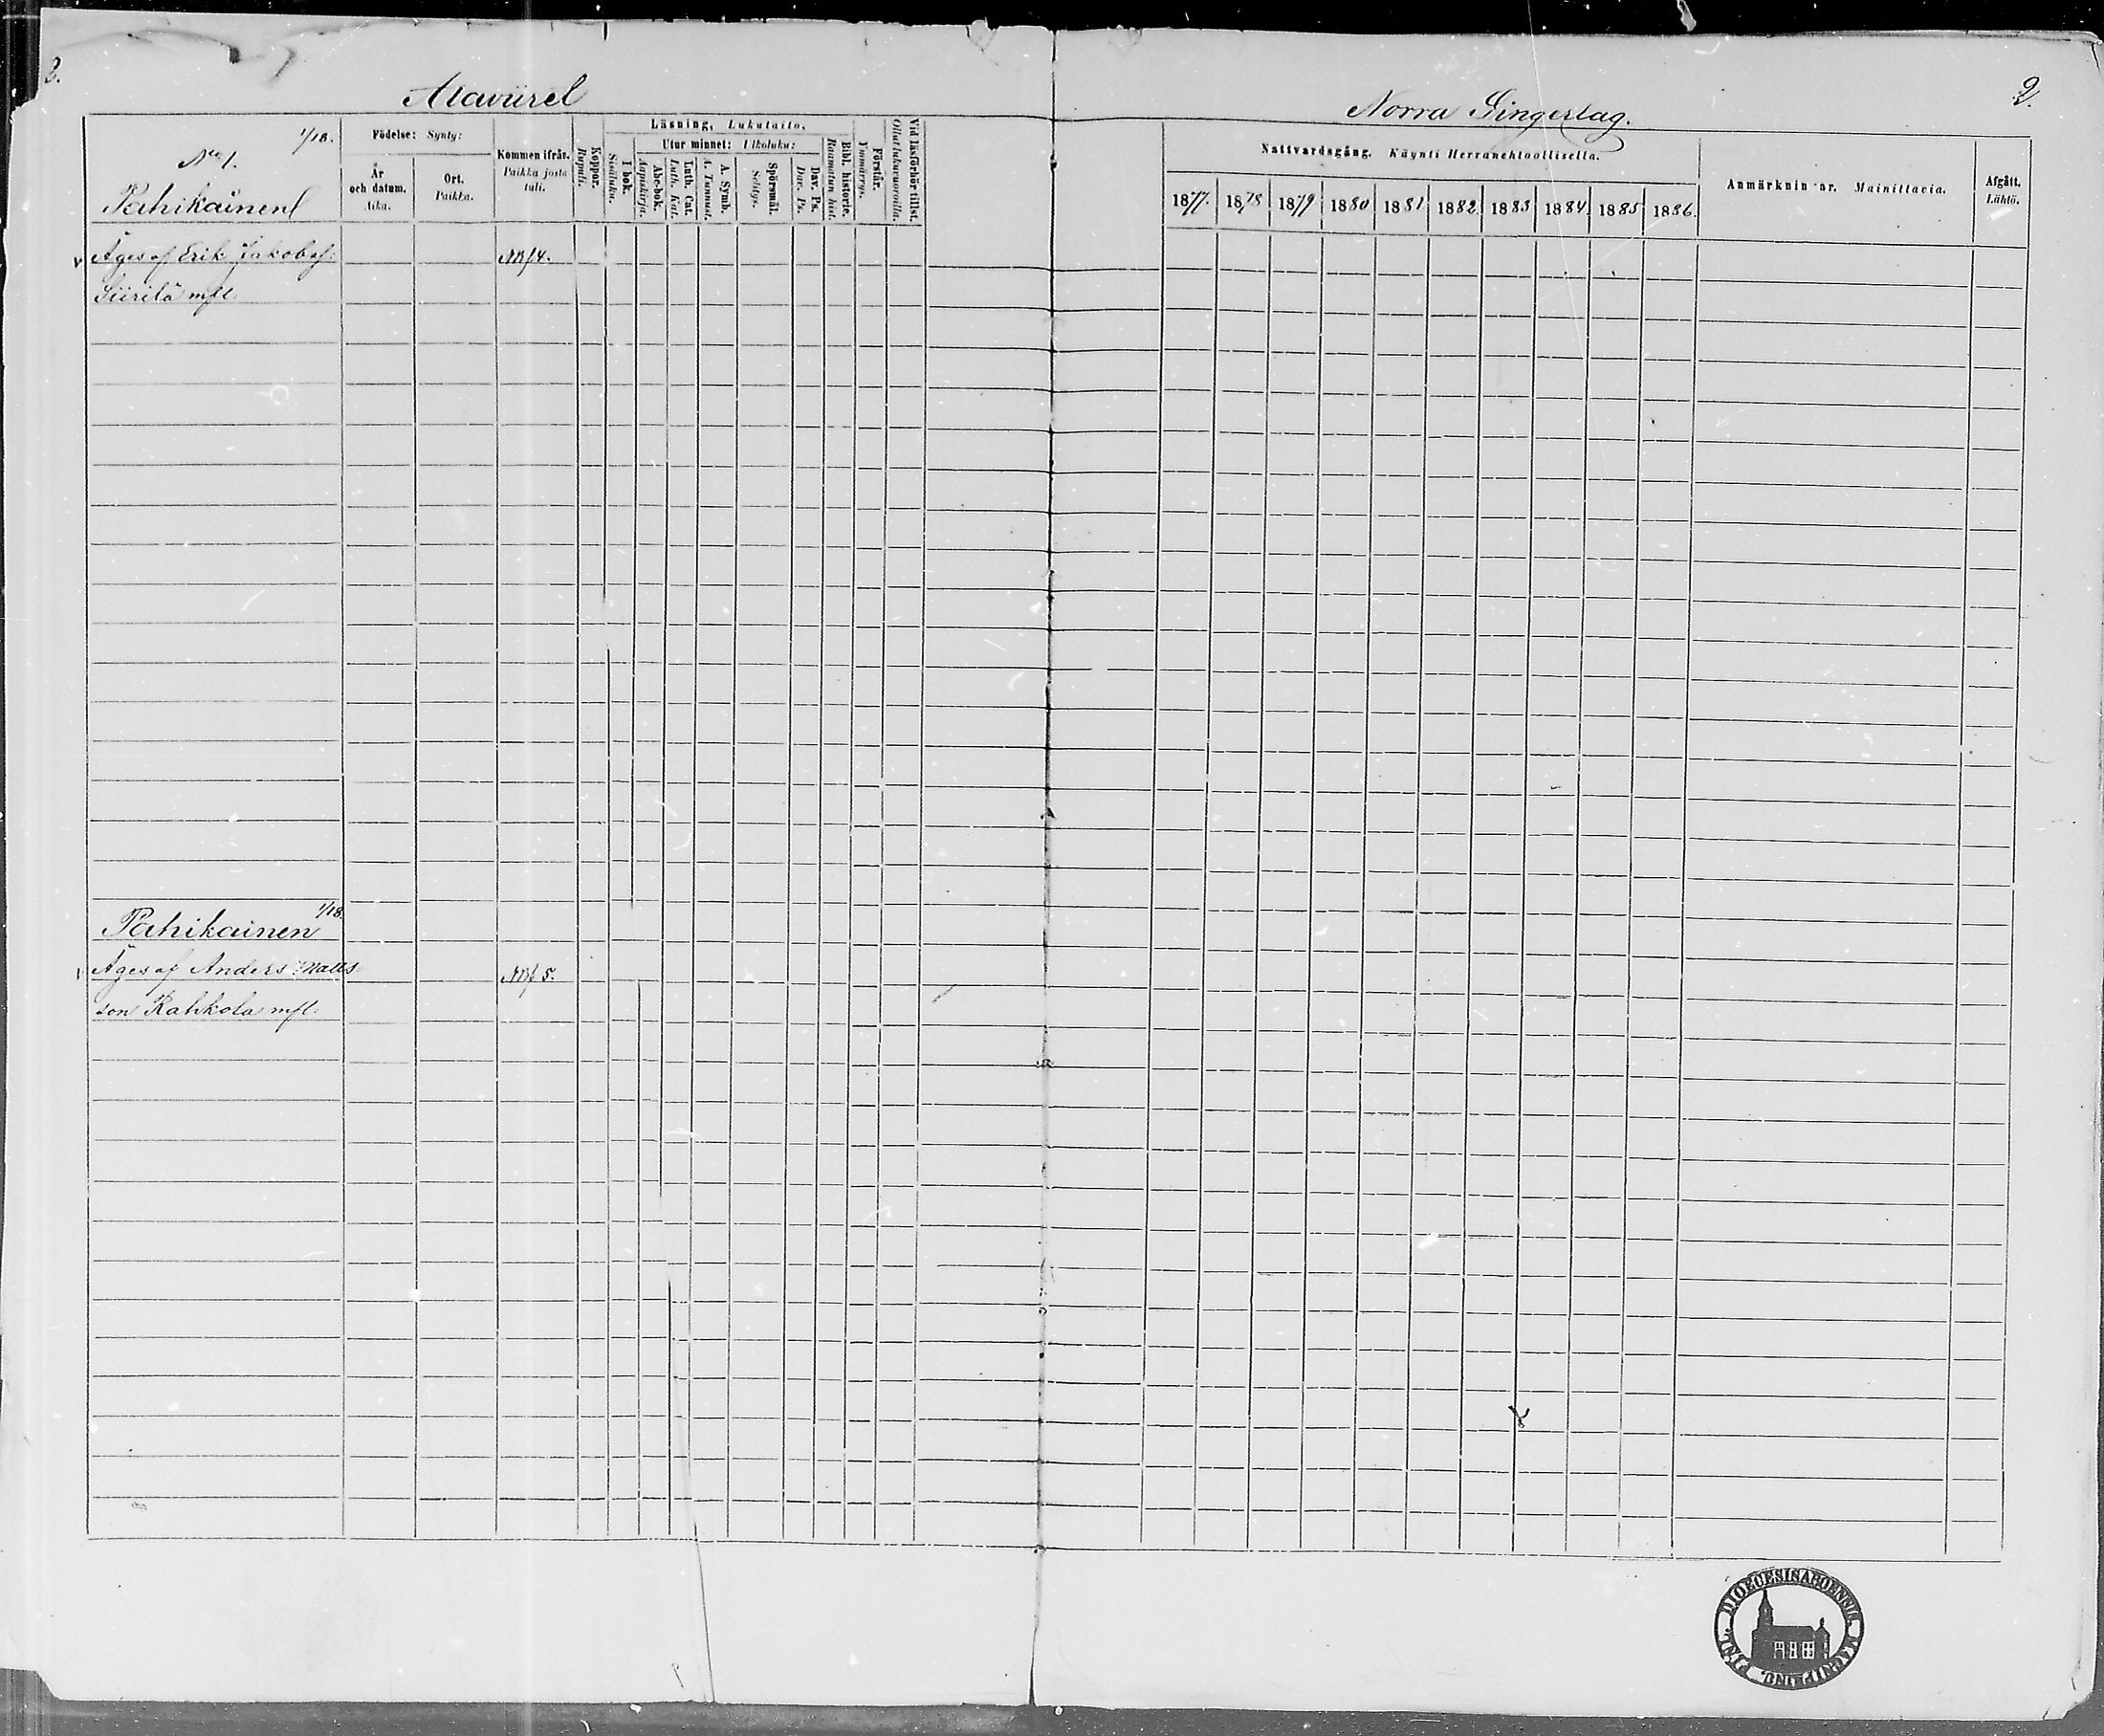 2.
Alaviirel
Norra Gingerlag.
2.
1/18.
No 1.
Pahikainen
Födelse: Synty:
År och datum. Aika.
Ort. Paikka.
Kommen ifrån. Paikka josta tuli.
Koppor. Rupuli.
Läsning, Lukutaito.
I bok. Sisäluku.
Utur minnet: Ulkoluku:
Abc-bok. Aapiskirja.
Luth. Cat. Luth. Kat.
A. Symb. A. Tunnust.
Spörsmål. Selitys.
Dav. Ps. Dav. Ps.
Bibl. historie. Raamatun hist.
Förstår. Ymmärrys.
Vid läsförhör tillst. Ollut lukuvuoroilla.
Nattvardsgång. Käynti Herranehtoollisella.
1877. 1878 1879 1880 1881 1882 1883 1884 1885 1886.
Anmärknin ar. Mainittavia.
Afgått. Lähtö.
v Äges af Erik Jakobsf: NB/4.
Siirilä mfl.
1/18.
Pahikainen
v Äges af Anders Matts NB/5.
son Rahkola mfl.